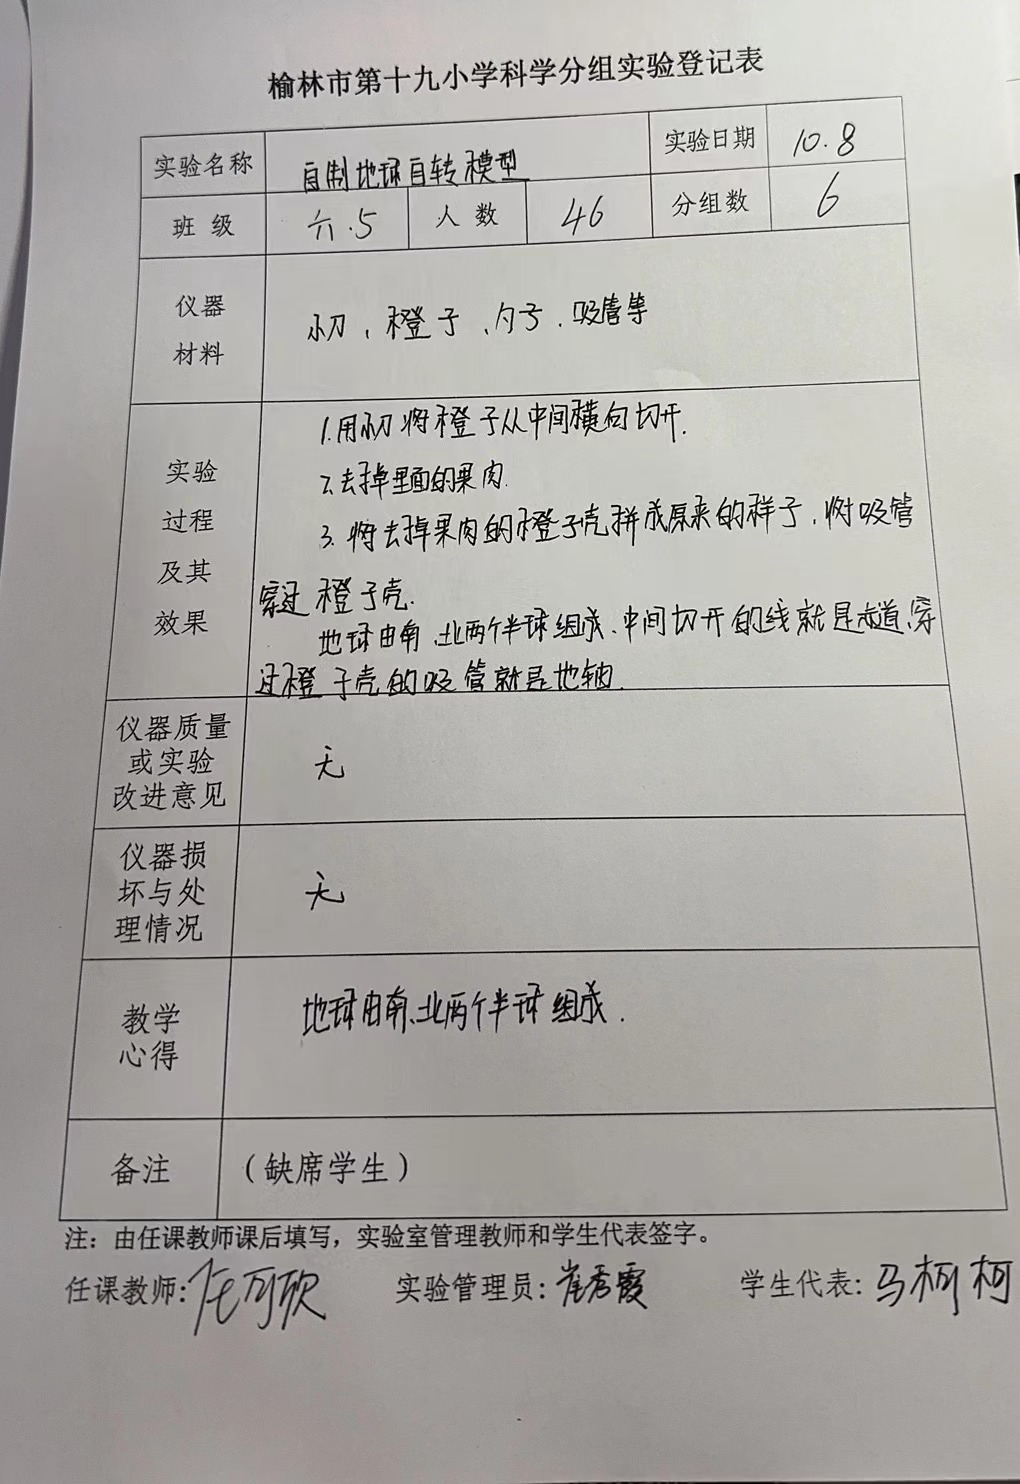 榆林市第十九小学科学分组实验登记表
实验名称 自制地球自转模型 实验日期 10.8
班 级 六.5 人 数 46 分组数 6
仪器
材料
小刀、橙子、勺子、吸管等
实验
过程
及其
效果
1.用小刀将橙子从中间横向切开.
2.去掉里面的果肉.
3.将去掉果肉的橙子壳拼成原来的样子,将吸管
穿过橙子壳.
地球由南、北两个半球组成、中间切开的线就是赤道,穿
过橙子壳的吸管就是地轴.
仪器质量
或实验
改进意见
无
仪器损
坏与处
理情况
无
教学
心得
地球由南、北两个半球组成.
备注 (缺席学生)
注：由任课教师课后填写，实验室管理教师和学生代表签字。
任课教师: 实验管理员:崔秀霞 学生代表:马柯柯